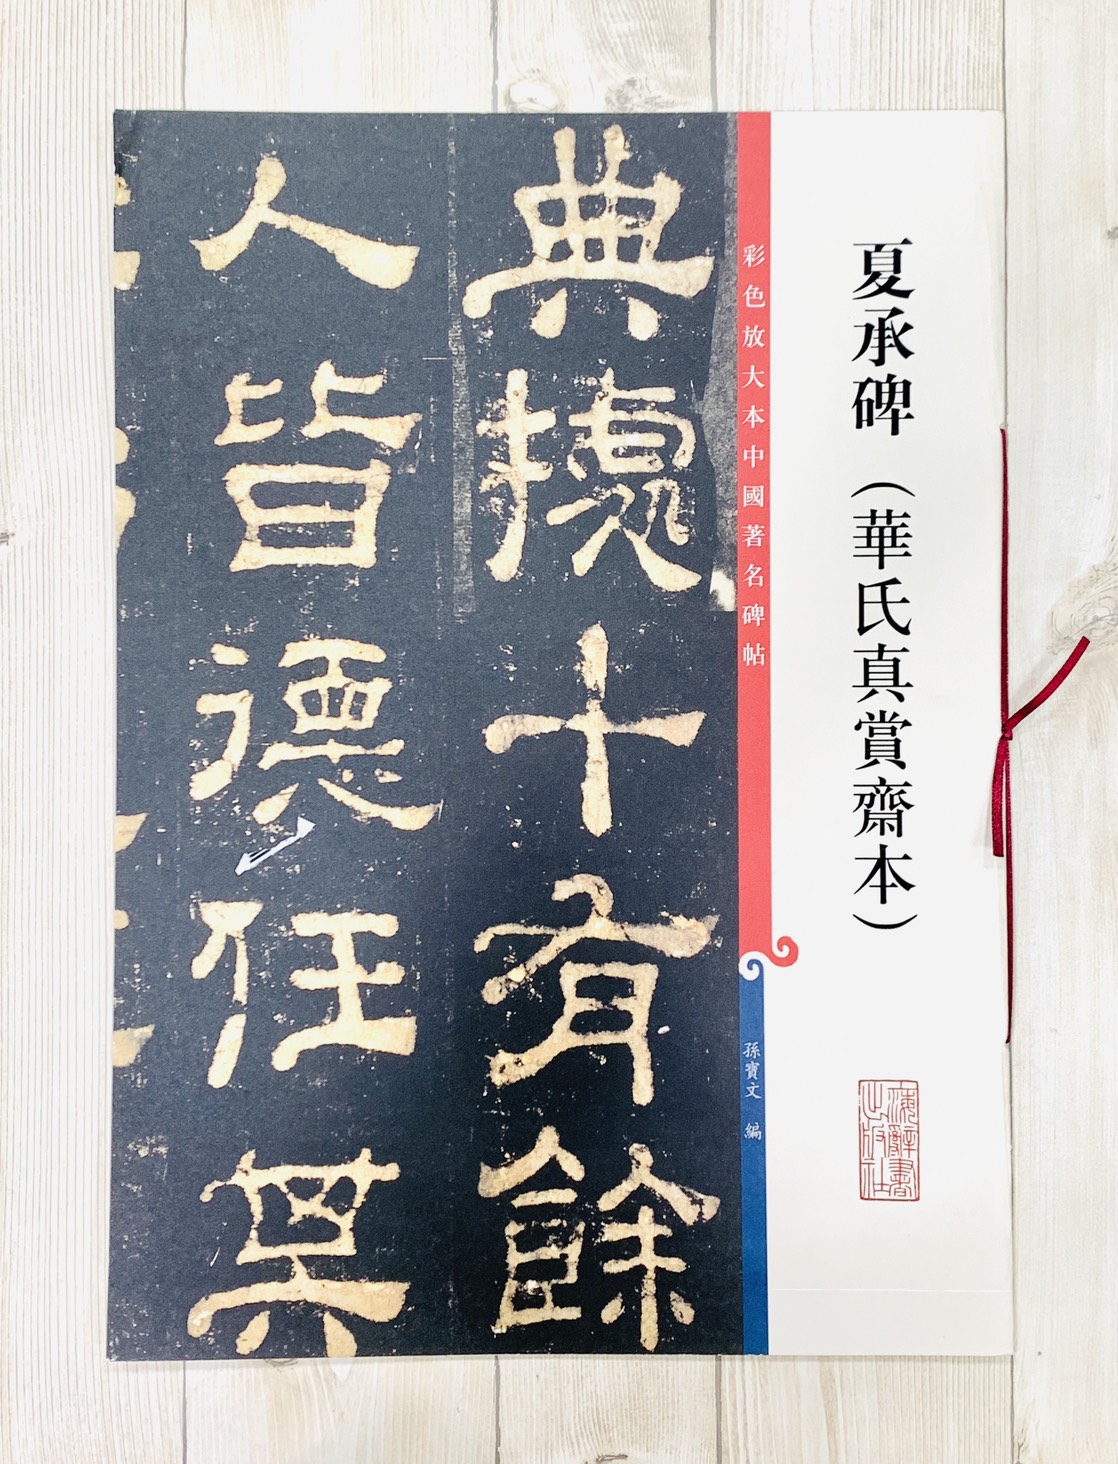 夏承碑（華氏真賞齋本）
上海辭書
出版社
彩色放大本中國著名碑帖
孫寶文 編
典據十有餘
人皆德任其